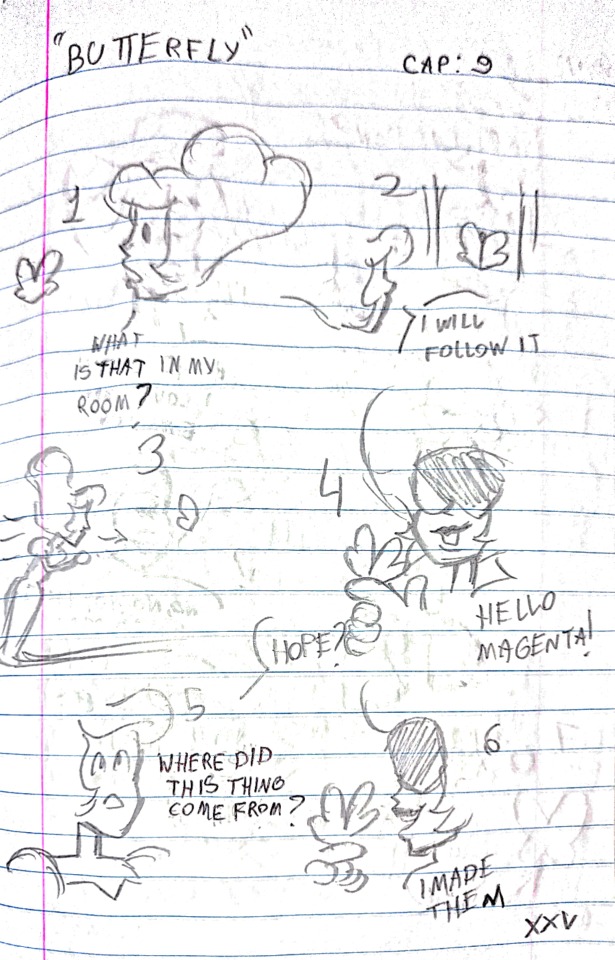 "BUTTERFLY"
CAP: 9
1
WHAT
IS THAT IN MY
ROOM?
2
I WILL
FOLLOW IT
3
4
HELLO
MAGENTA!
HOPE?
5
WHERE DID
THIS THING
COME FROM?
6
I MADE
THEM
XXV